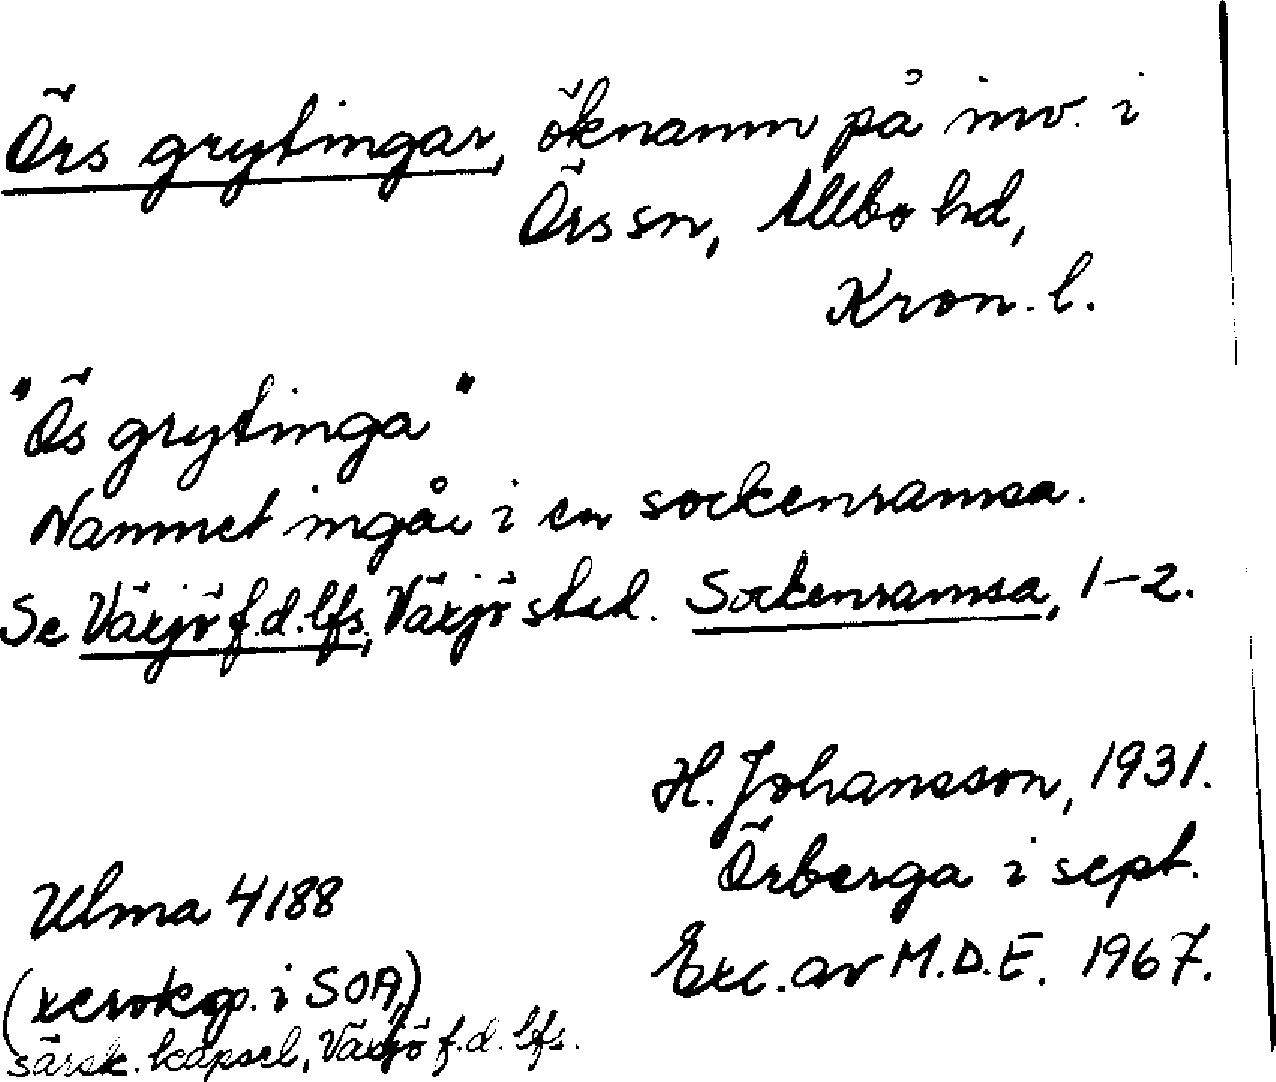 Örs grytingar, öknamn på inv. i
Örs sn, Allbo hd,
Kron. l.
"Ös grytinga"
Namnet ingår i en sockenramsa.
Se Växjö f.d. lfs, Växjö stad. Sockenramsa, 1-2.
H. Johansson, 1931.
Örberga i sept.
Ulma 4188
Exc. av M.D.E. 1967.
(xerokop. i SOA,)
särsk. kapsel, Växjö f.d. lfs.